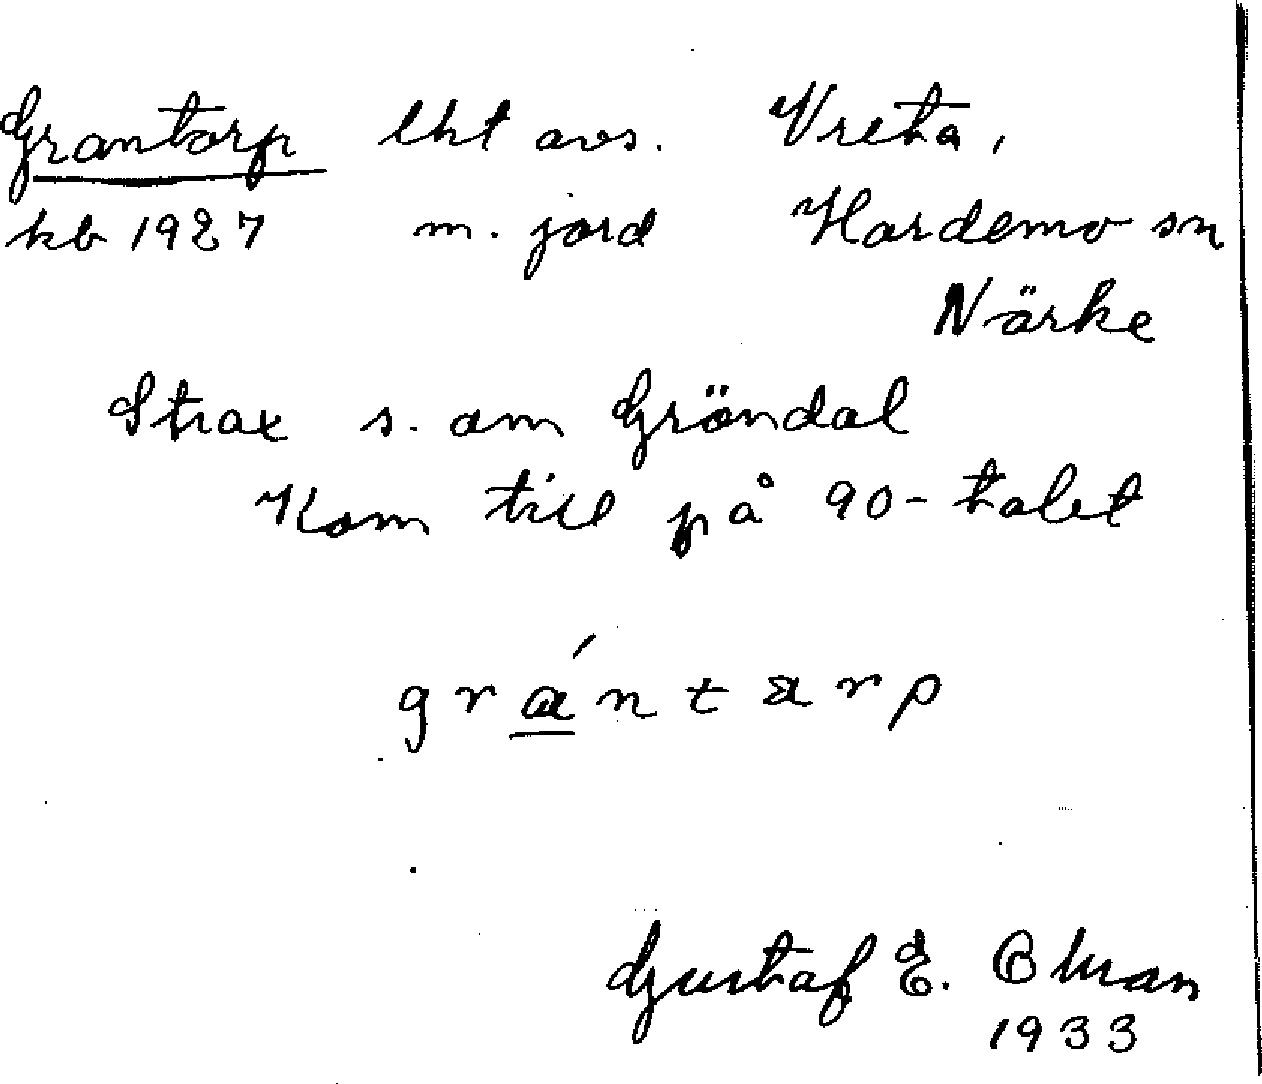 Grantorp lht avs. Vreta,
kb 1927 m. jord Hardemo sn
Närke
Strax s. om Gröndal
Kom till på 90-talet
grántarp
Gustaf E. Ohman
1933